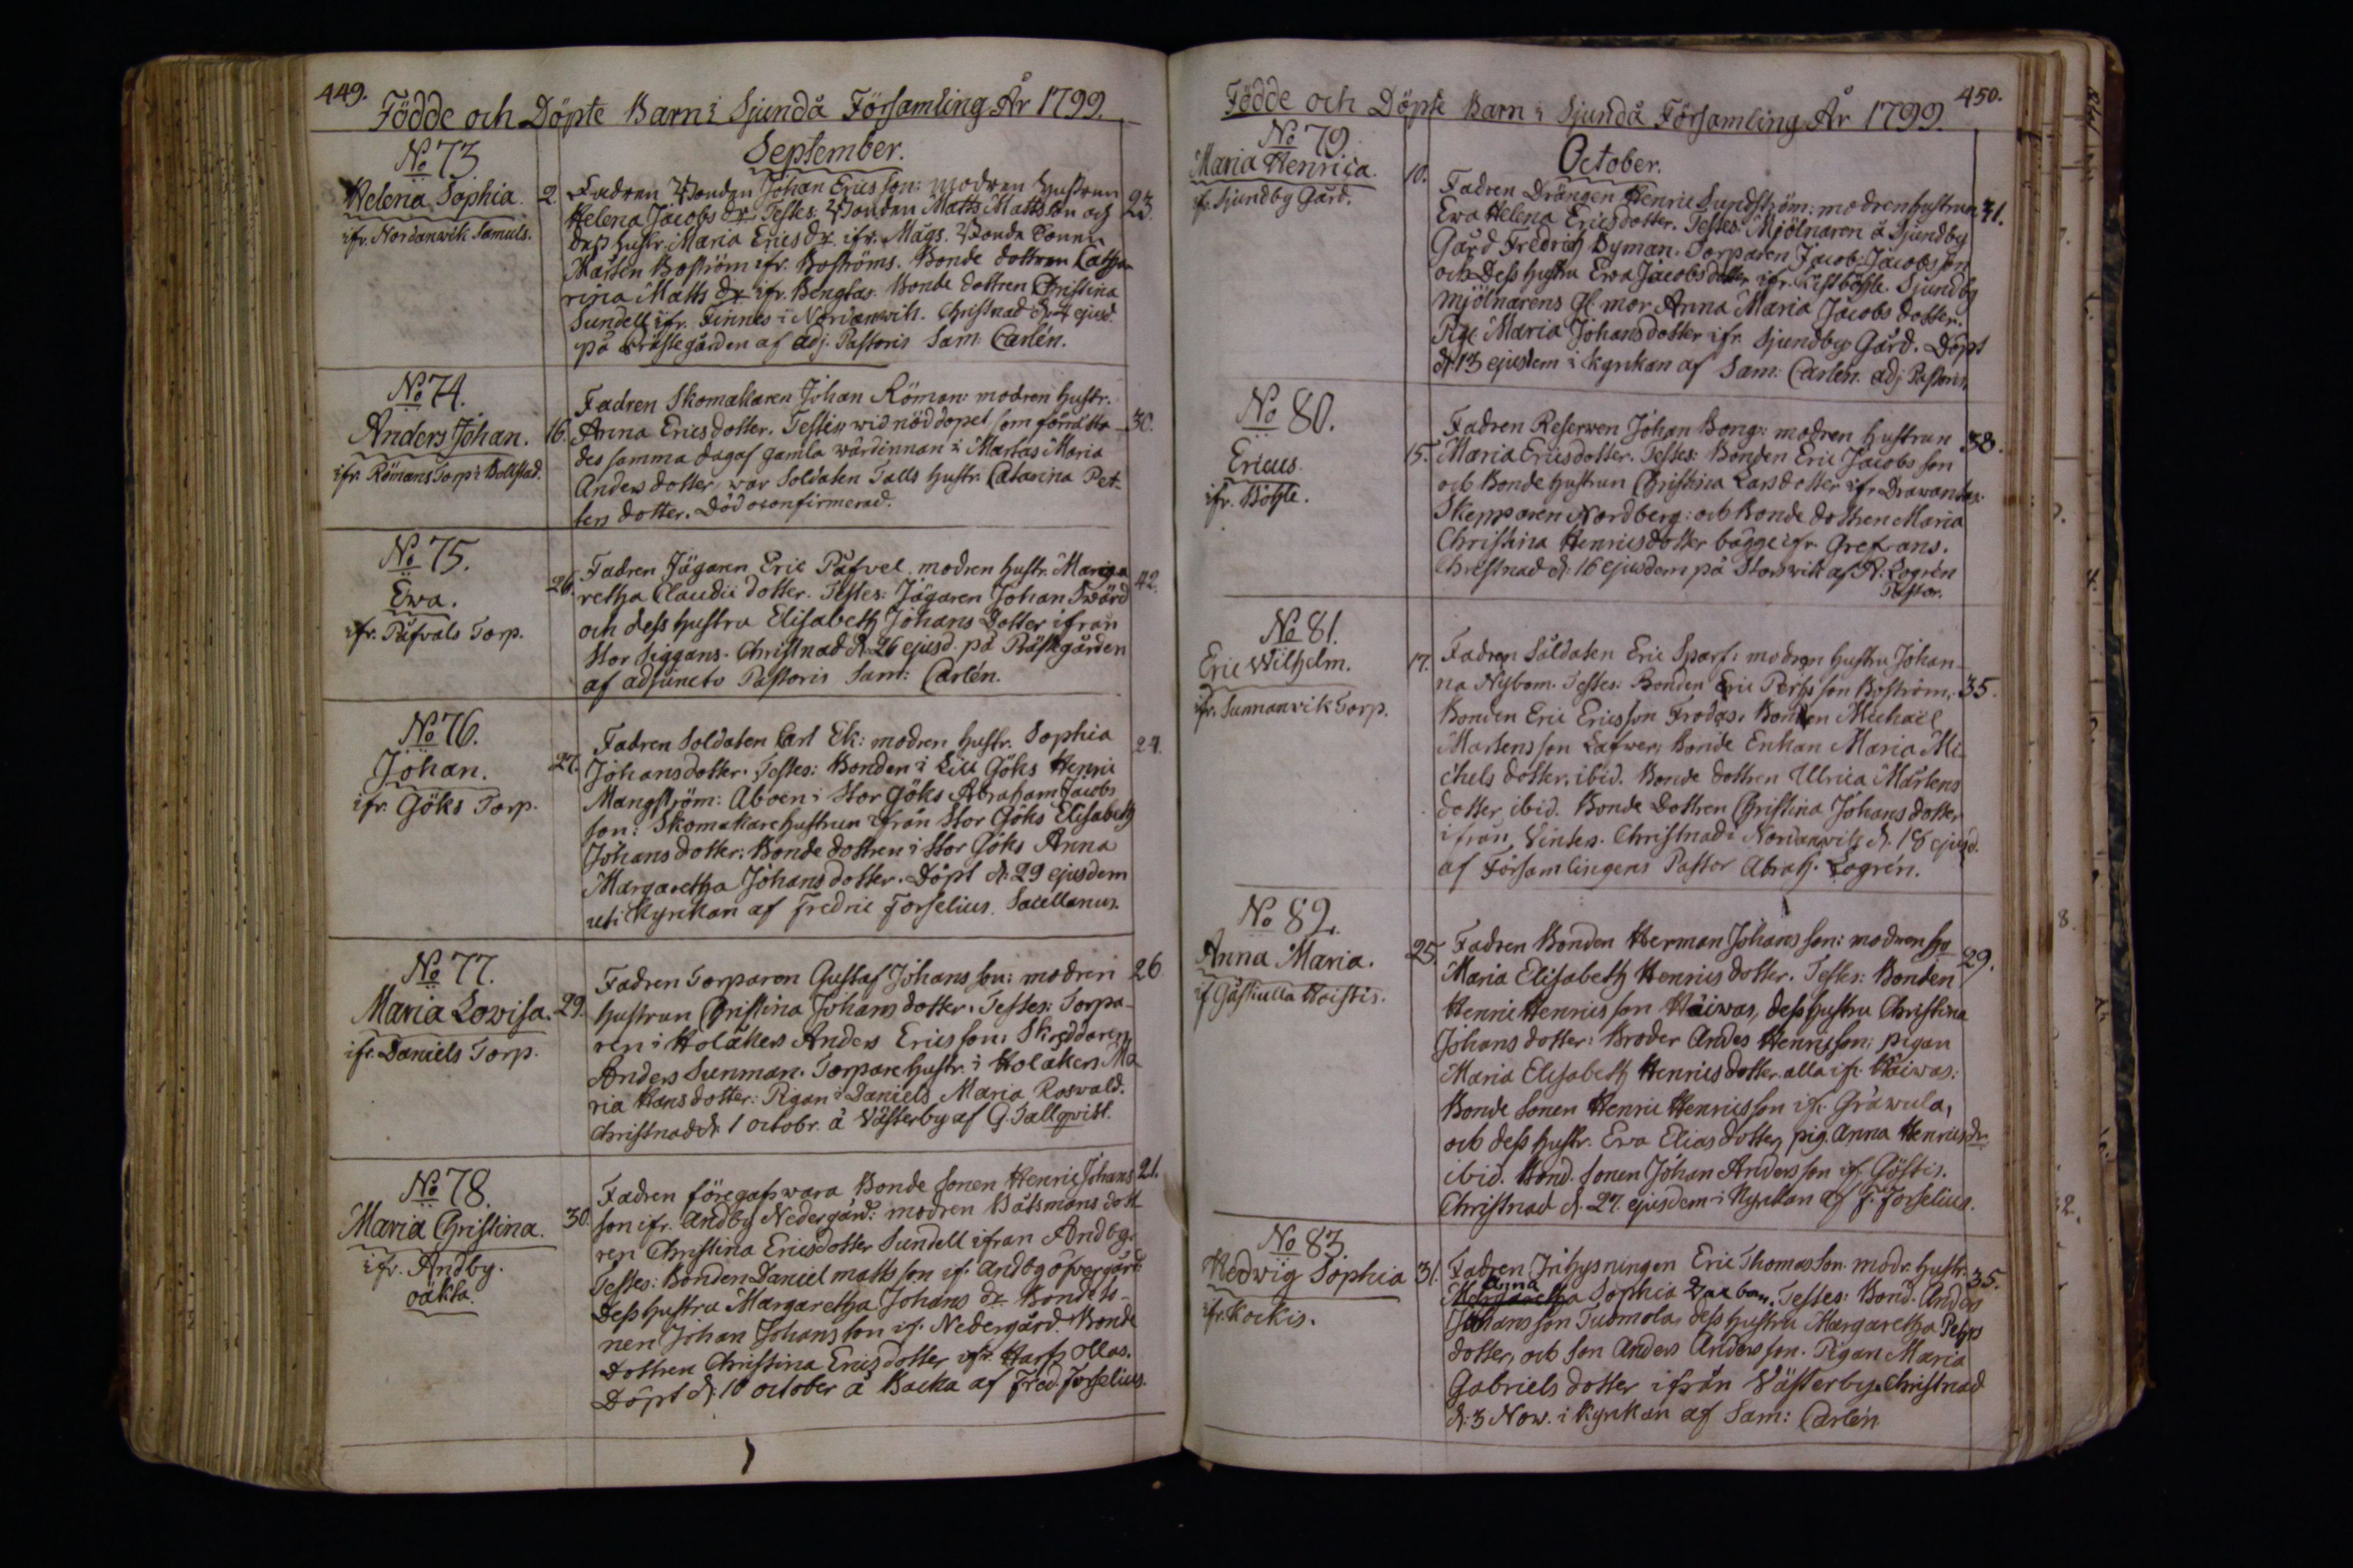 449.
Födde och Döpte Barn i Sjundå Församling År 1799.
September.
No 73.
Helena Sophia.
ifr. Nordanwik Samuls.
2.
Fadren Bonden Johan Ericsson: modren hustrun
Helena Jacobs dr. Testes: Bonden Matts Mattsson och
dess hustr. Maria Erics dr ifr. Mågs. Bonde Sonen
Mårten Boström ifr. Boströms. Bonde dottren Catha-
rina Matts dr ifr. Bengtas. Bonde dottren Christina
Sundell ifr. Finnes i Nordanwik. Christnad d. 4 ejusd.
på Prästegården af adj. Pastoris Sam: Carlén.
23.
No 74.
Anders Johan.
ifr. Römans Torp i Bollstad.
16.
Fadren Skomakaren Johan Röman: modren hustr.
Anna Ericsdotter. Testis wid nöddopet som förrätta-
des samma dag af gamla wärdinnan i Martas Maria
Andersdotter, war Soldaten Talls hustr. Catarina Pet-
ters dotter. Död oconfirmerad.
30.
No 75.
Ewa.
ifr. Påfvals Torp.
26.
Fadren Jägaren Eric Påfvel. modren hustr. Marga
retha Claudii dotter. Testes: Jägaren Johan Swärd
och dess hustru Elisabeth Johans Dotter ifrån
Stor Siggans. Christnad d. 26 ejusd. på Prästgården
af adjuncto Pastoris Sam: Carlén.
42.
No 76.
Johan.
ifr. Göks Torp.
27.
Fadren Soldaten Carl Ek: modren hustr. Sophia
Johansdotter. Testes: Bonden i Lill Göks Henric
Mangström: Åboen i Stor Göks Abraham Jacobs
son: Skomakarehustrun ifrån Stor Göks Elisabeth
Johans dotter: Bonde dottren i Stor Göks Anna
Margaretha Johans dotter. Döpt d. 29 ejusdem
uti Kyrkan af Fredric Forselius. Sacellanus.
24.
No 77.
Maria Lovisa.
ifr. Daniels Torp.
29.
Fadren Torparen Gustaf Johansson: modren
hustrun Christina Johans dotter. Testes: Torpa-
ren i Holåkers Anders Ericsson: Skreddaren
Anders Sunman. Torpare hustr. i Holåkers Ma
ria Hansdotter: Pigan i Daniels Maria Roswald.
Christnad d. 1 octobr. å Västerby af G. Tallqvist.
26
No 78.
Maria Christina.
ifr. Andby.
oäkta.
30.
Fadren föregafs wara Bonde Sonen Henric Johans
son ifr. Andby Nedergård: modren Båtsmans dott
ren Christina Ericsdotter Sundell ifrån Andby.
Testes: Bonden Daniel Matts son if. Andby öfvergård
Dess hustru Margaretha Johans dr. Bonde So-
nen Johan Johansson if. Nedergård. Bonde
Dottren Christina Ericsdotter ifr. Harfs Ollas.
Döpt d. 10 october å Backa af Fred. Forselius.
21.
450.
Födde och Döpte Barn i Sjundå Församling År 1799.
October.
No 79.
Maria Henrica.
ifr. Sjundby Gård.
10.
Fadren Drängen Henric Sundström: modren hustrun
Ewa Helena Ericsdotter. Testes: Mjölnaren å Sjundby
Gård Fredrich Byman. Torparen Jacob Jacobsson
och Dess hustru Ewa Jacobsdotter ifr. Böhle. Sjundby
mjölnarens Gl. mor Anna Maria Jacobs dotter.
Pig. Maria Johansdotter ifr. Sjundby Gård. Döpt
d. 13 ejusdem i Kyrkan af Sam: Carlén. adj. Pastoris.
31.
No 80.
Ericus.
ifr. Böhle.
15.
Fadren Reserwen Johan Bong: modren hustrun
Maria Ericsdotter. Testes: Bonden Eric Jacobsson
och Bonde hustrun Christina Larsdotter ifr Drawantas.
Skepparen Nordberg: och Bonde dottren Maria
Christina Henricsdotter bägge ifr. Grefvans.
Christnad d. 16 ejusdem på Storswik af A: Logrén
Pastor.
38.
No 81.
Eric Wilhelm.
ifr. Sunnanvik Torp.
17.
Fadren Soldaten Eric Sparf: modren hustru Johan-
na Nybom. Testes: Bonden Eric Persson Boström,
Bonden Eric Ericsson Frodas. Bonden Michaël
Mårtensson Lafwer: Bonde Enkan Maria Mi-
chels dotter. ibid. Bonde dottren Ulrica Mårtens
dotter ibid. Bonde Dottren Christina Johans dotter
ifrån Vinters. Christnad i Nordanwik d. 18 ejusd.
af Församlingens Pastor Abrah. Logrén.
35.
No 82.
Anna Maria.
if Gåstiulla Hoistis.
25.
Fadren Bonden Herman Johansson: modren hu
Maria Elisabeth Henrics dotter. Testes: Bonden
Henric Henricsson Häiwas, dess hustru Christina
Johans dotter: Broder Anders Henricsson: pigan
Maria Elisabeth Henricsdotter alla ifr. Häiwas:
Bonde Sonen Henric Henricsson ifr. Gräwula,
och dess hustr. Ewa Eliasdotter, pig. Anna Henricsdr
ibid. Bond. sonen Johan Andersson if. Göstis.
Christnad d. 27. ejusdem i Kyrkan af F. Forselius.
29.
No 83.
Hedwig Sophia
ifr. Kockis.
31.
Fadren Inhysningen Eric Thomasson. modr. hustr.
Anna
Margaretha Sophia Testes: Bond. Anders
Johansson Tuomola, dess hustru Margaretha Pehrs
dotter, och son Anders Andersson. Pigan Maria
Gabriels dotter ifrån Västerby. Christnad
d. 3 Now. i Kyrkan af Sam: Carlén
35.